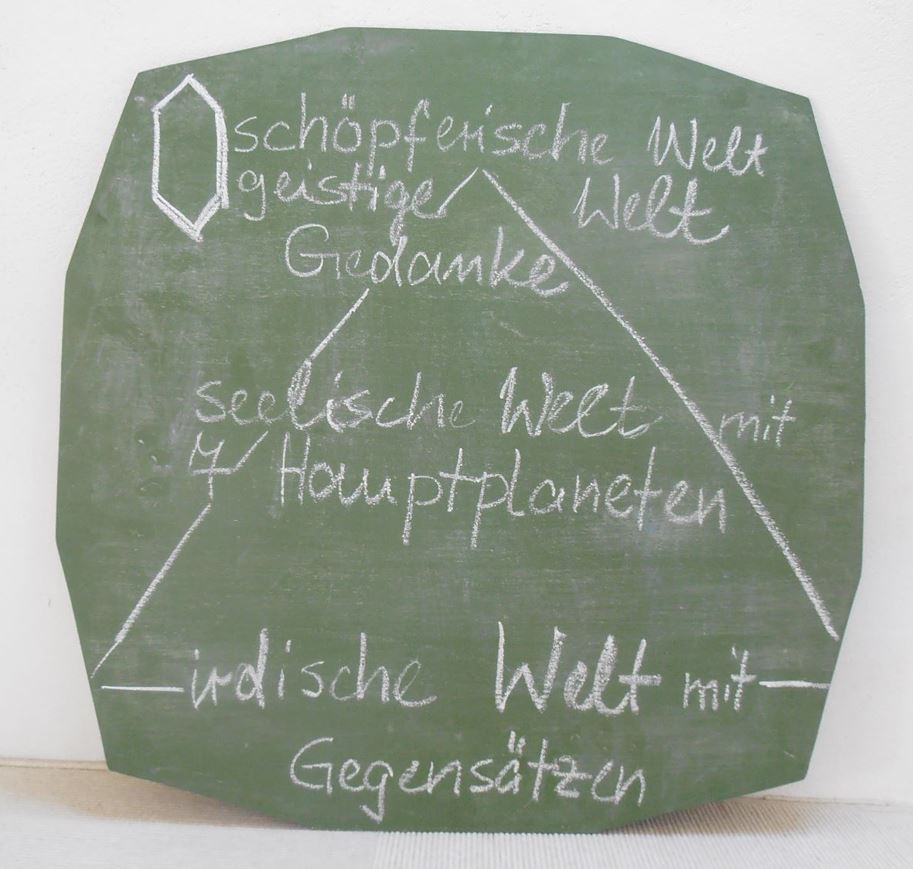 schöpferische Welt
geistige Welt
Gedanke
seelische Welt mit
7 Hauptplaneten
irdische Welt mit
Gegensätzen